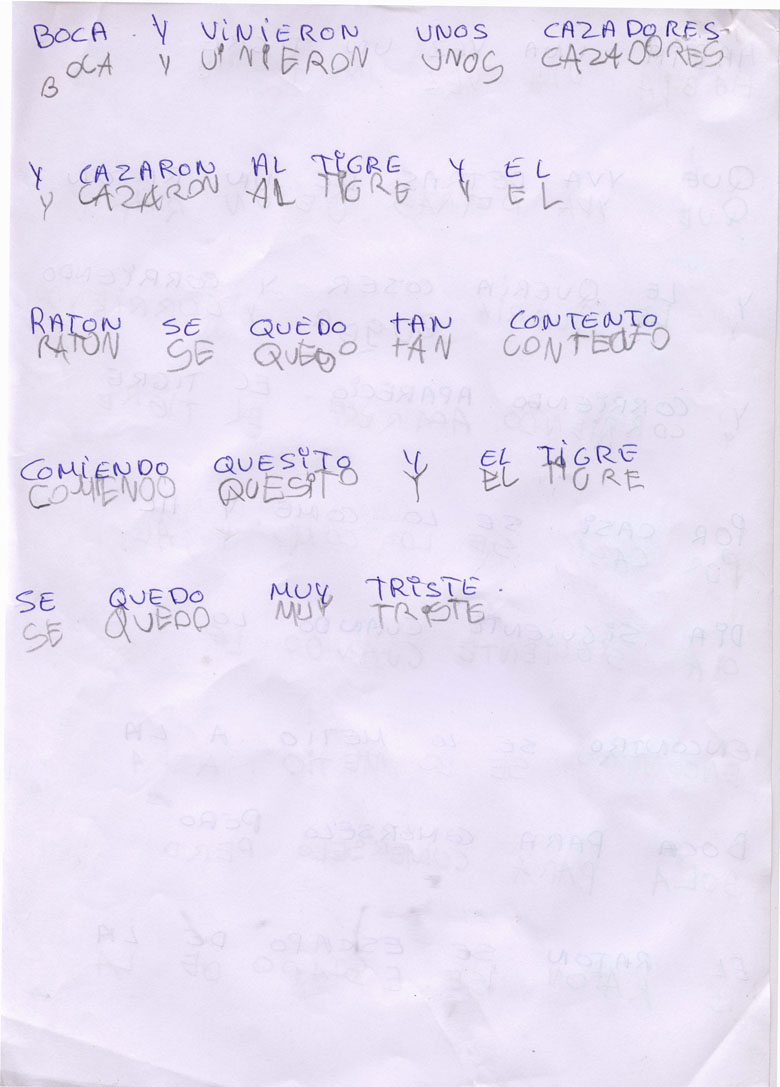 BOCA Y ViNiERON UNOS CAZADORES
BOCA Y ViNIERON UNOS CAZADORES
Y CAZARON AL TiGRE Y EL
Y CAZARON AL TIGRE Y EL
RATON SE QUEDO tAN CONTENTO
RATON SE QUEDO tAN CONTENTO
COMiENDO QUESiTO Y EL TiGRE
COMIENDO QUESiTO Y EL TIGRE
SE QUEDO MUY TRiSTE.
SE QUEDO MUY TRiSTE